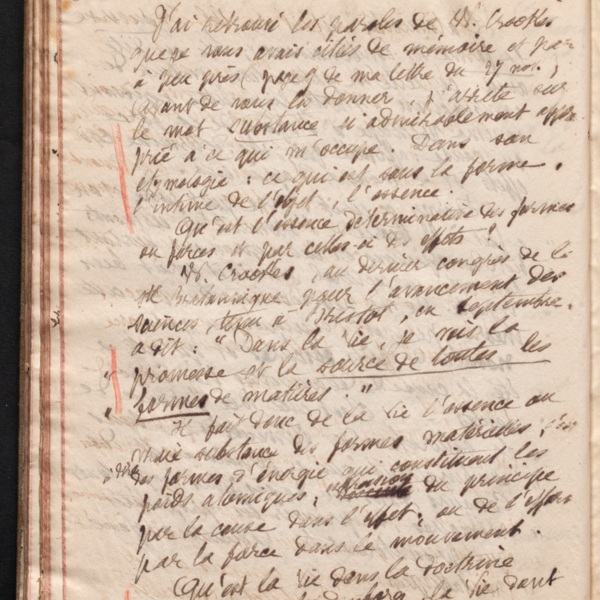 J'ai retrouvé les paroles de W. Crookes
que je vous avais citées de mémoire et par
à peu près (page 9 de ma lettre du 27 nov.)
avant de vous la donner, j'arrête sur
le mot substance si admirablement appro-
prié à ce qui m'occupe. Dans son
etymologie : ce qui est sous la forme,
l'intime de l'objet, l'essence.
Qu'est l'essence déterminative des formes
ou forces et par celles-ci des effets ?
W. Crookes, au dernier congrès de la
Britannique pour l'avancement des
sciences, tenu à Bristol, en septembre,
a dit : " Dans la vie, je vois la
" promesse et la source de toutes les
" formes de matières. "
Il fait donc de la vie l'essence ou
substance des formes matérielles,
des formes d'énergie qui constituent les
poids atomiques, du principe
par la cause dans l'effet, ou de l'effort
par la force dans le mouvement.
Qu'est la vie dans la doctrine
la vie dont